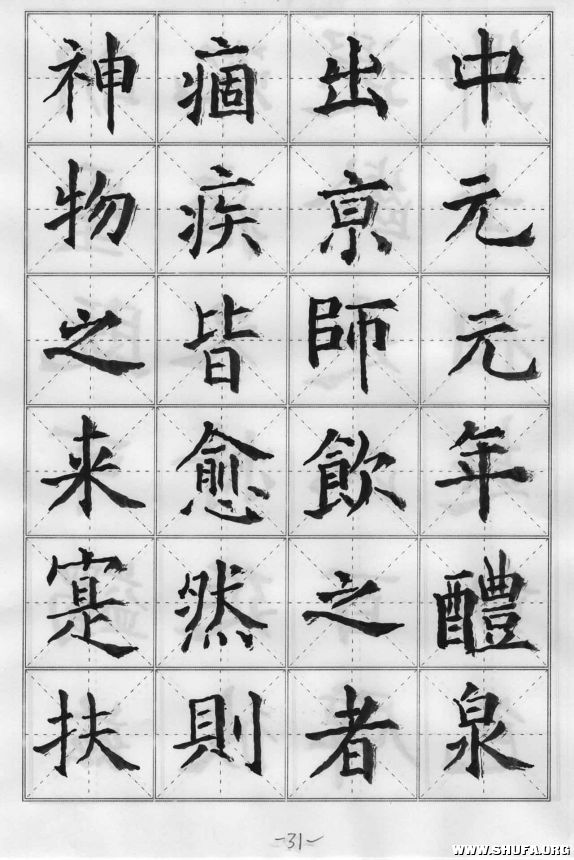 中元元年醴泉
出京師飲之者
痼疾皆愈然則
神物之来寔扶
-31-
WWW.SHUFA.ORG